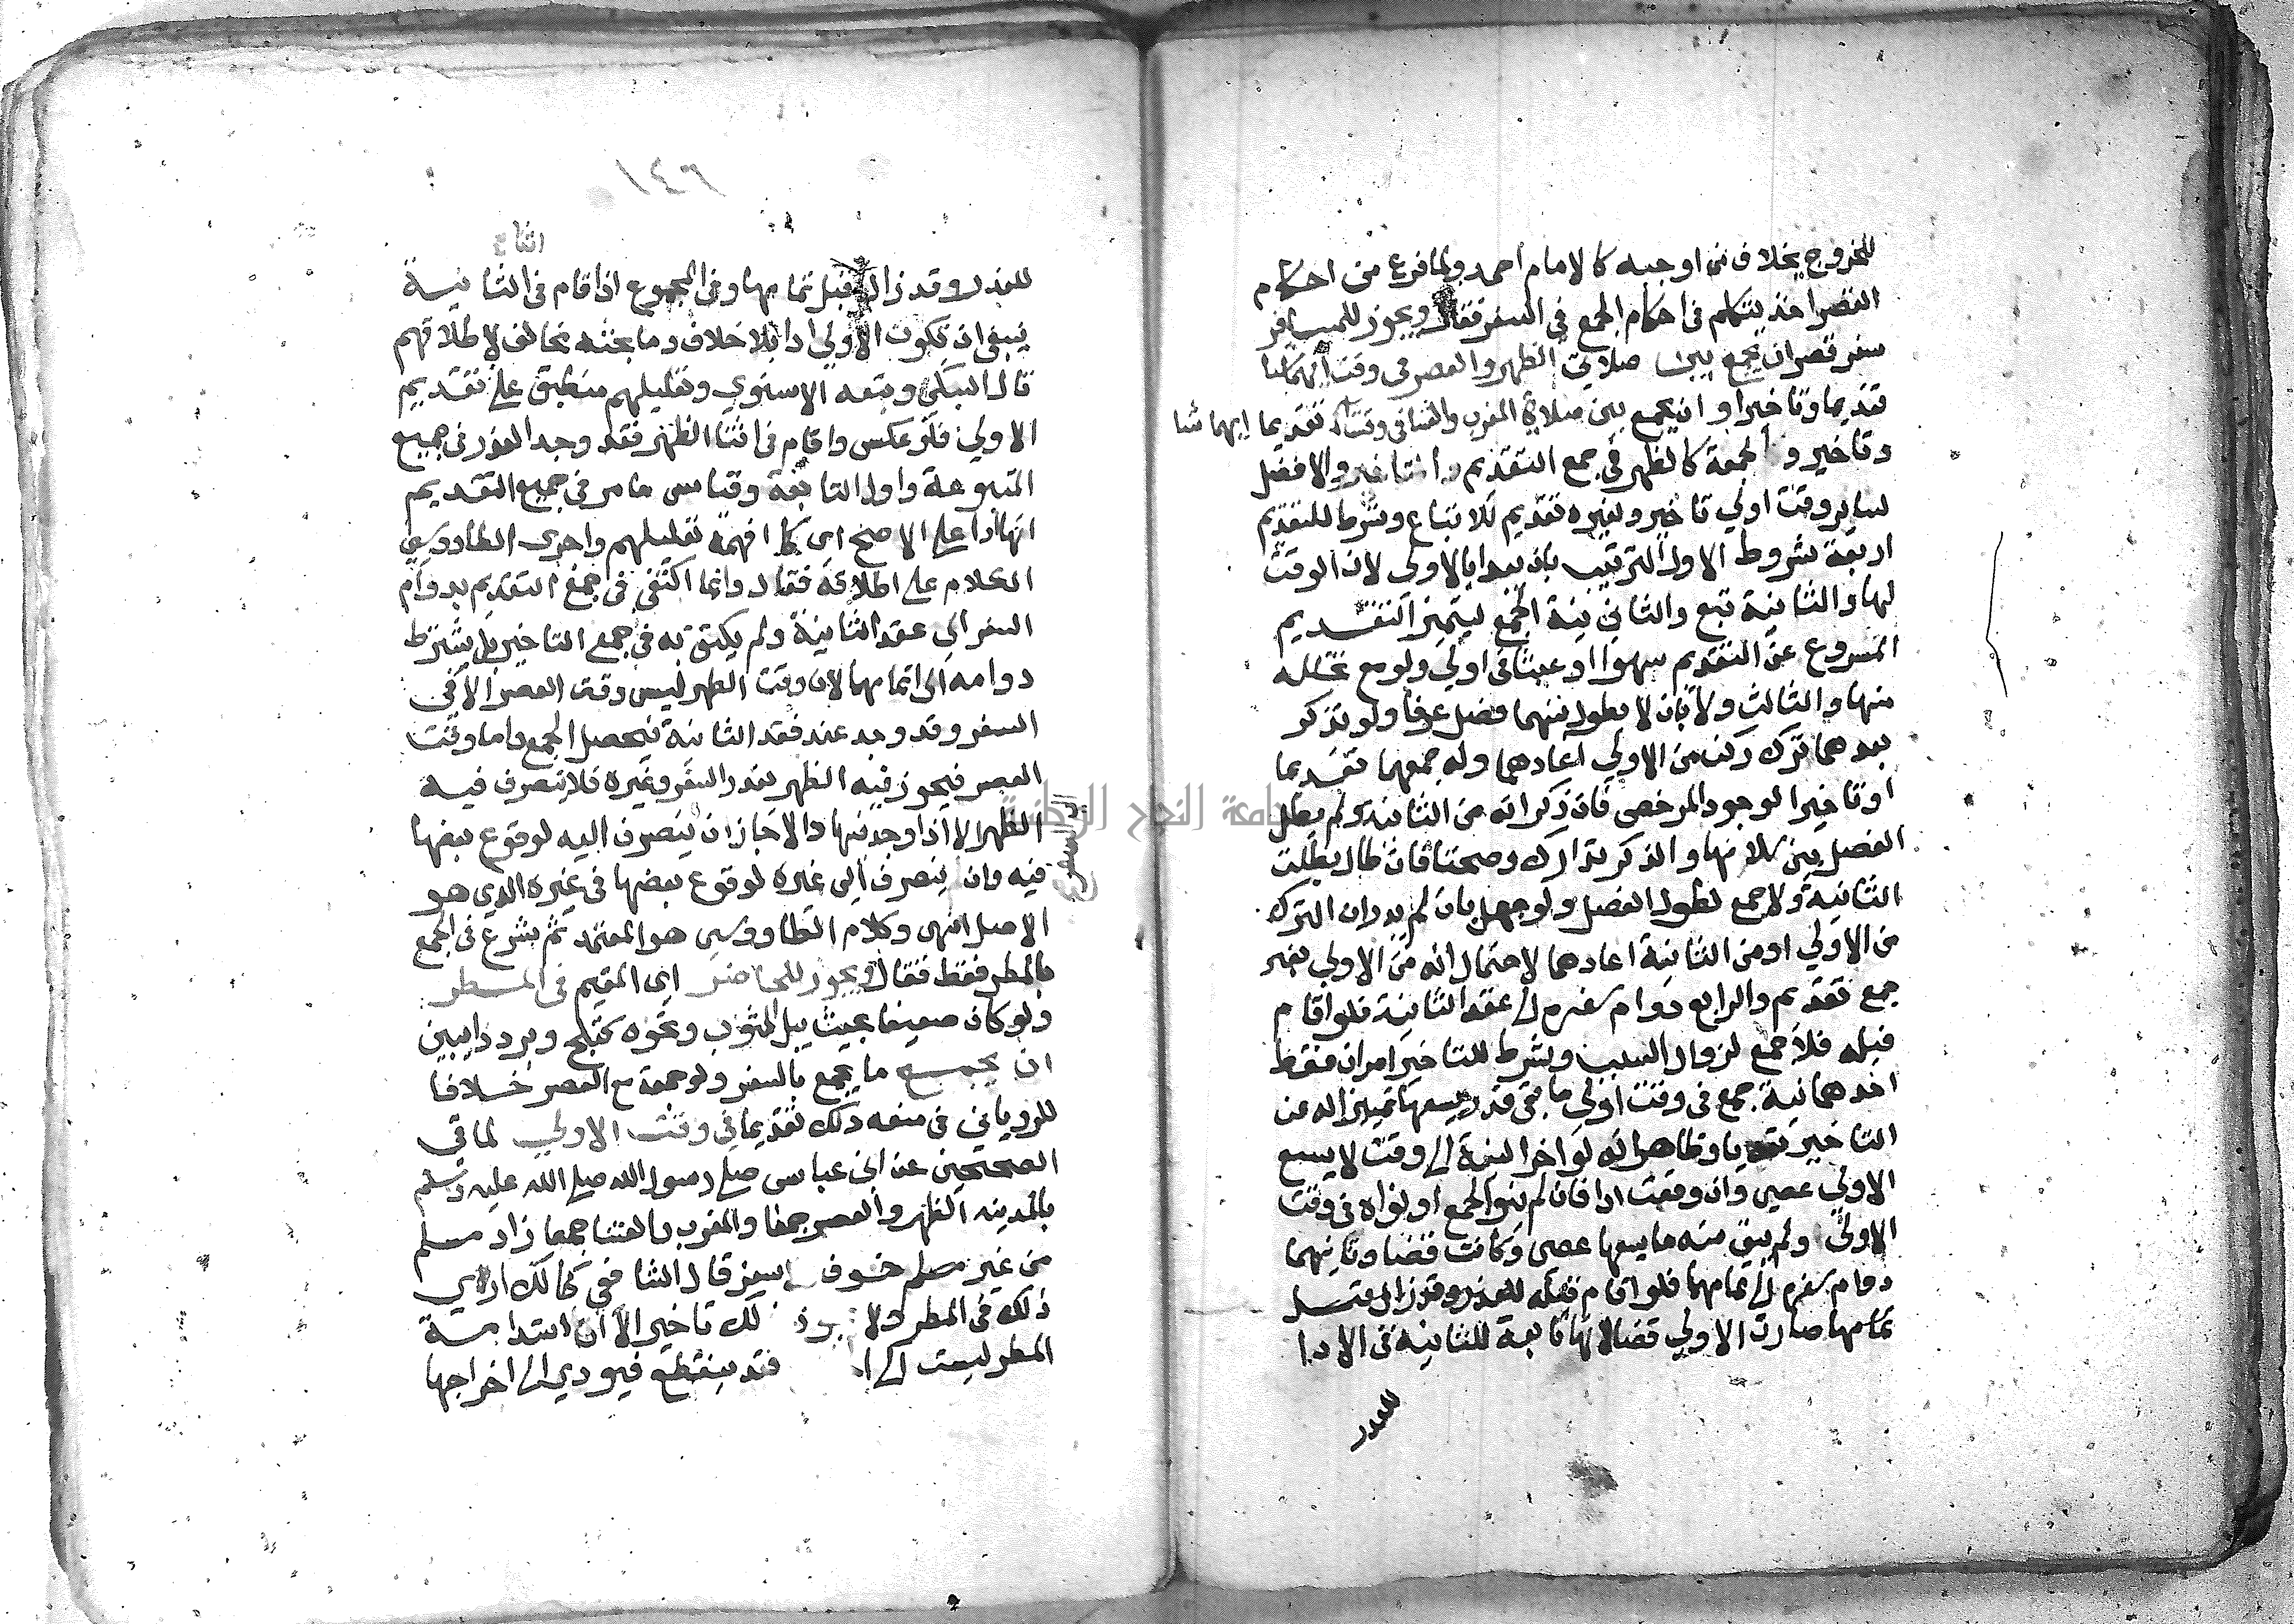 للخروج بخلاف من اوجبه كالامام احمد ولما فرغ من احكام
القصر اخذ يتكلم في احكام الجمع في السفر فقال ويجوز للمسافر
سفر قصر ان يجمع بين صلاتي الظهر والعصر في وقت ايهما شا
تقديما وتاخيرا وان يجمع بين صلاة المغرب والعشا في وقت تقديما ايهما شا
وتاخير والجمعة كالظهر في جمع التقديم والافضل
لساير وقت اولي تاخير ولغيره تقديم للاتباع وشرط للتقديم
اربعة شروط الاول الترتيب بان يبدا بالاولى لان الوقت
لها والثانية تبع والثاني نية الجمع ليتميز التقديم
المشروع عن التقديم سهوا او عبثا في اولي ولو مع تحلله
منها والثالث ولا بان لا يطول بينهما فصل عرفا ولو تذكر
بعدهما ترك ركن من الاولي اعادهما وله جمعهما تقديما
او تاخيرا لوجود المرخص فان ذكر انه من الثانية ولم يطل
الفصل بين سلامها والذكر تدارك وصحتا فان طال بطلت
الثانية ولا جمع لطول الفصل ولو جهل بان لم يدر ان الترك
من الاولي او من الثانية اعادهما لاحتمال انه من الاولي بغير
جمع تقديم والرابع دوام سفره الى عقد الثانية فلو اقام
قبله فلا جمع لزوال السبب وشرط للتاخير امران فقط
احدهما نية جمع في وقت اولي ما بقي قدر يسعها تمييزا له عن
التاخير تعديا وظاهر انه لو اخر النية الى وقت لا يسع
الاولي عصى وان وقعت ادا فان لم ينو الجمع او نواه في وقت
الاولي ولم يبق منه ما يسعها عصى وكانت قضا وثانيهما
دوام سفره الى تمامهما فلو اقام قبله للعذر وقد زال قبل
تمامها صارت الاولي قضا لانها تابعة للثانية في الادا
للعذر
١٤٦
اثنا
للعذر وقد زال قبل تمامها وفي المجموع اذا قام في الثانية
ينبغي ان تكون الاولي ادا بلا خلاف وما بحثه مخالف لاطلاقهم
قال السبكي وتبعه الاسنوي وتعليلهم منطبق على تقديم
الاولي فلو عكس واقام في اثنا الظهر فقد وجد العذر في جميع
المتبوعة واول التابعة وقياس ما مر في جميع التقديم
انها ادا على الاصح اي كما افهمه تعليلهم واجرى الطاووسي
الكلام على اطلاقه فقال وانما اكتفي في جمع التقديم بدوام
السفر الى عقد الثانية ولم يكتف به في جمع التاخير بل يشترط
دوامه الى اتمامها لان وقت الظهر ليس وقت العصر الا في
السفر وقد وجد عند فقد الثانية فيحصل الجمع واما وقت
العصر فيجوز فيه الظهر بعذر السفر وغيره فلا ينصرف فيه
الظهر الا اذا وجد فيها والا جاز ان ينصرف اليه لوقوع بعضها
فيه وان ينصرف الى غيره لوقوع بعضها في غيره الذي هو
الاصل انتهى وكلام الطاووسي هو المعتمد ثم شرع في الجمع
بالمطر فقط فقال ويجوز للحاضر اي المقيم في المطر
ولو كان ضعيفا بحيث يبل الثوب ونحوه كثلج وبرد ذايبين
ان يجمع ما يجمع بالسفر ولو جمعة مع العصر خلافا
للروياني في منعه ذلك تقديما في وقت الاولي لما في
الصحيحين عن ابن عباس صلى رسول الله صلى الله عليه وسلم
بالمدينة الظهر والعصر جمعا والمغرب والعشا جمعا زاد مسلم
من غير خوف سفر قال الشافعي كمالك ارى
ذلك في المطر ولا ذلك تاخيرا لان استدامة
المطر ليست الى فقد ينقطع فيودي الى اخراجها
جامعة النجاح الوطنية